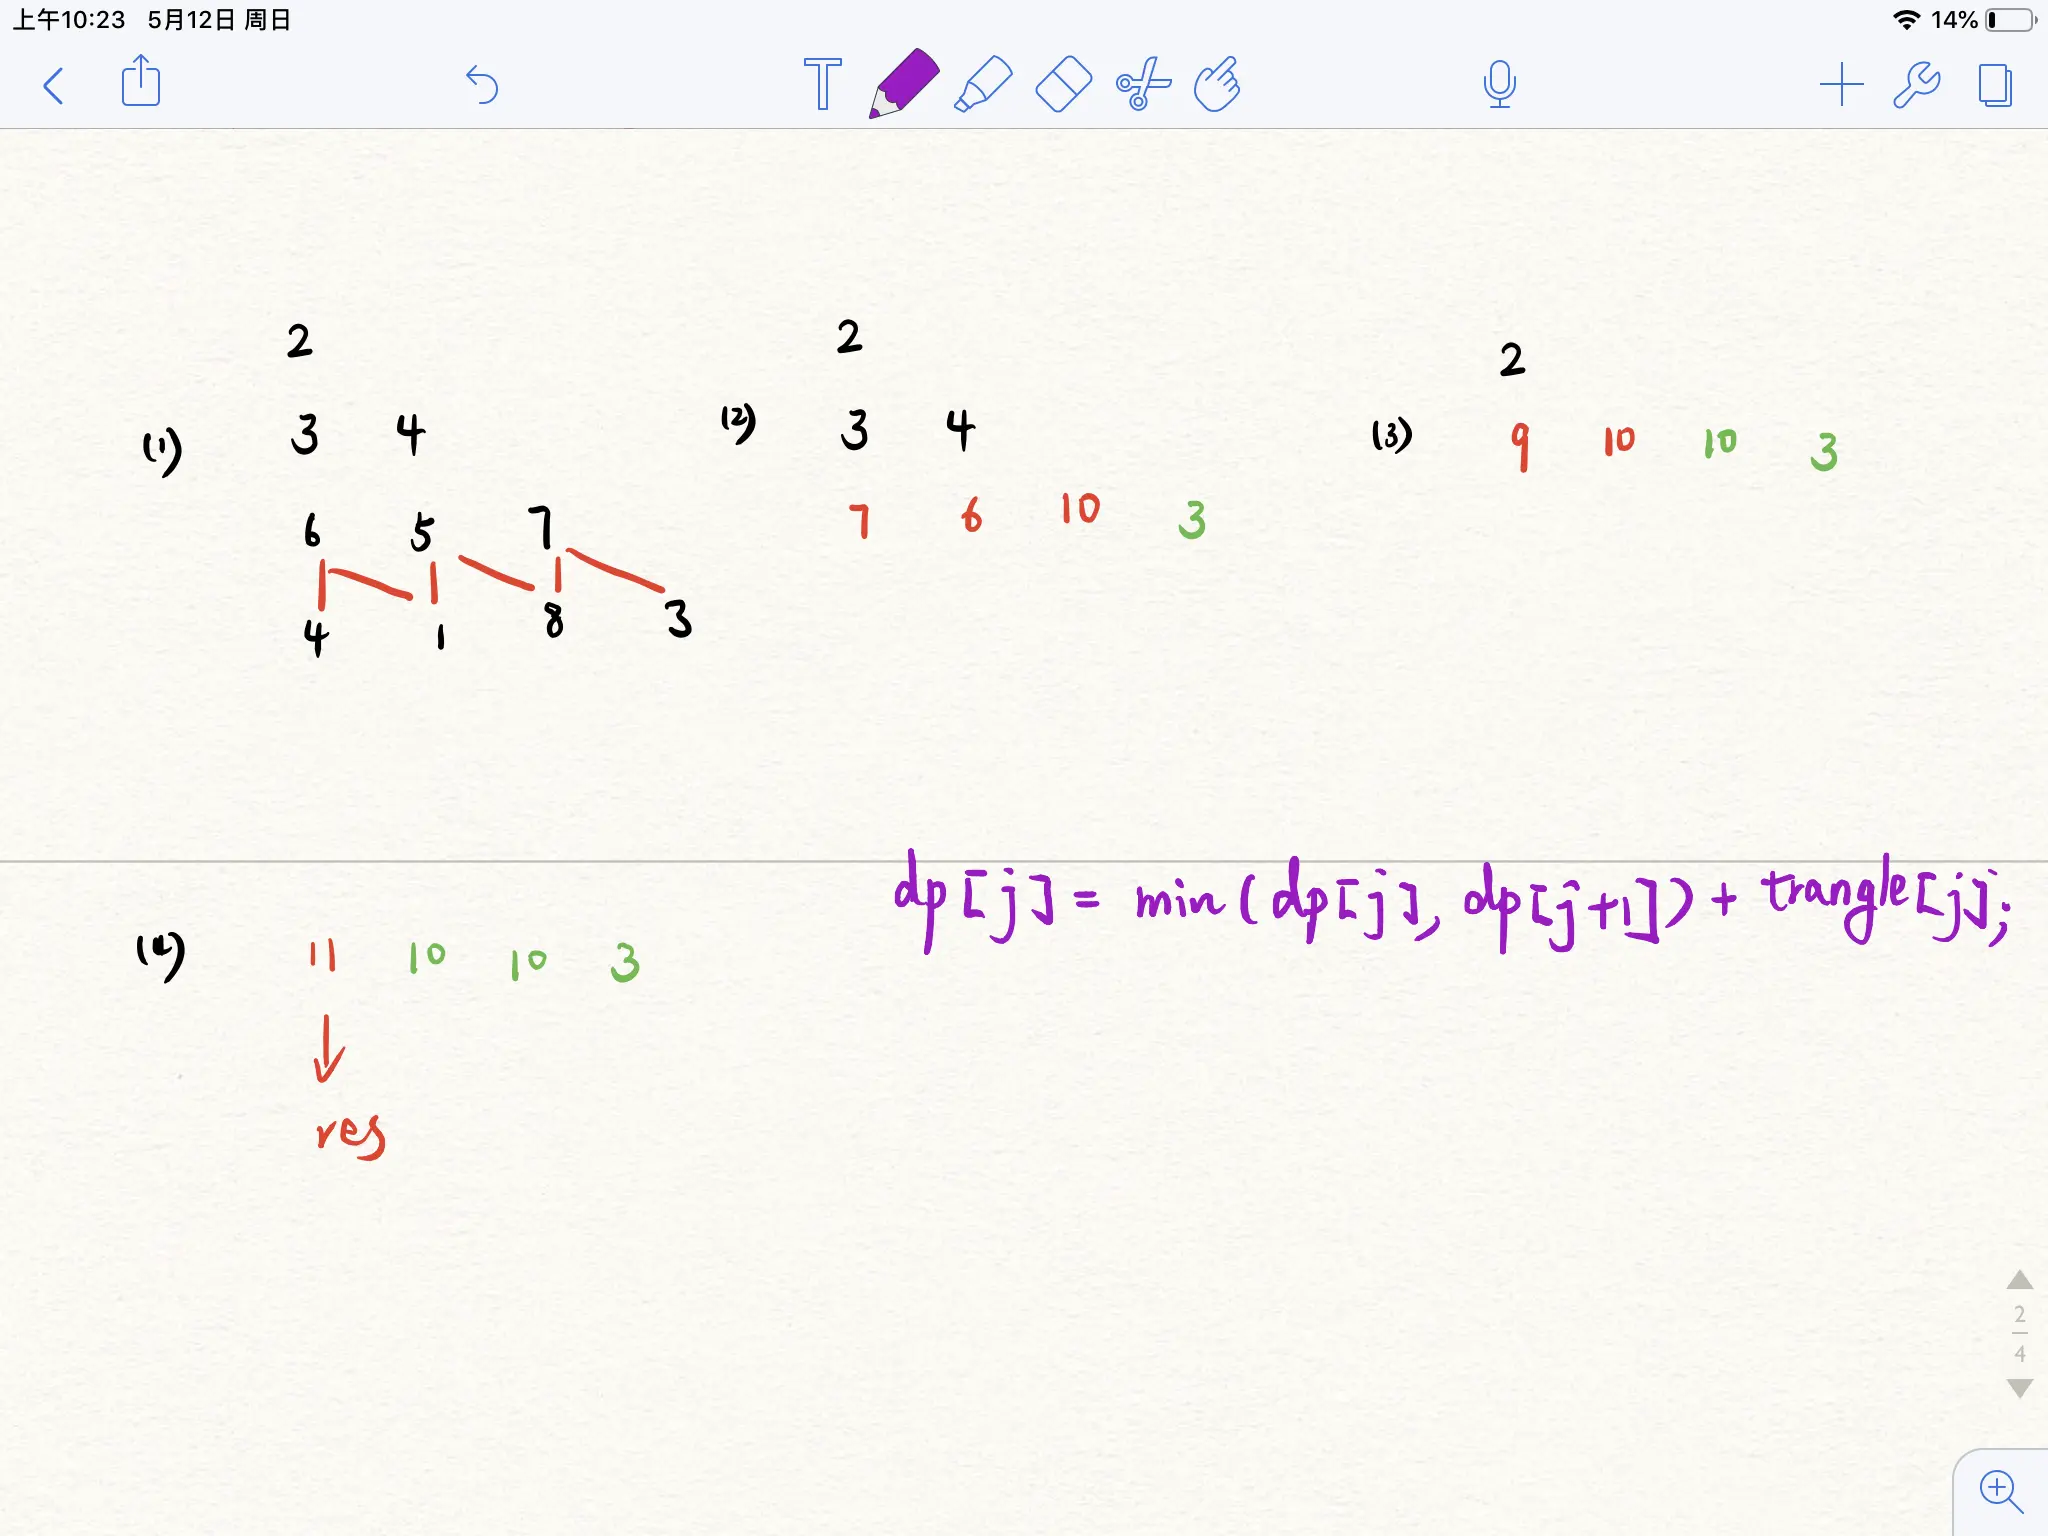 上午10:23 5月12日 周日 14%
2
(1) 3 4
6 5 7
4 1 8 3
2
(2) 3 4
7 6 10 3
2
(3) 9 10 10 3
dp[j] = min(dp[j], dp[j+1]) + trangle[j];
(4) 11 10 10 3
res
2
4